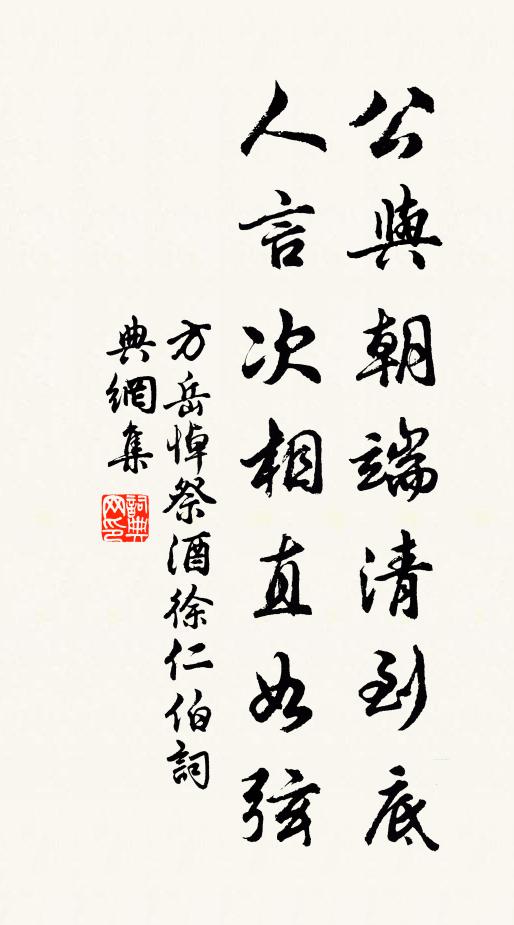 公與朝端清到底
人言次相直如弦
方岳悼祭酒徐仁伯詞
典網集
詞典网印